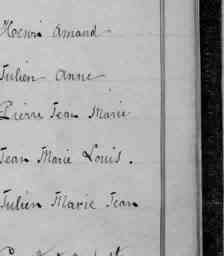 Henri Amand
Julien Anne
Pierre Jean Marie
Jean Marie Louis.
Julien Marie Jean